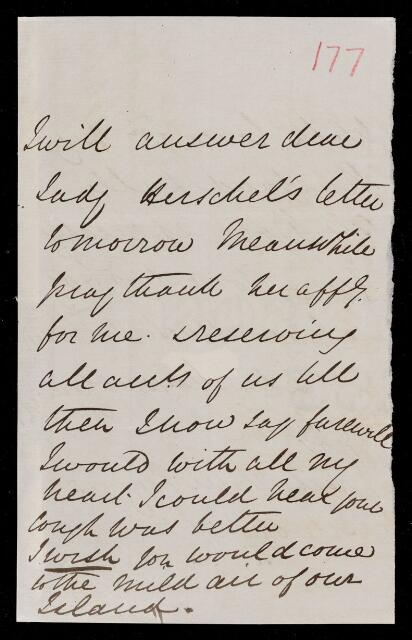 177
I will answer dear
Lady Herschel's letter
tomorrow Meanwhile
pray thank her affly.
for me. & reserving
all accts of us till
then I now say farewell
I would with all my
heart I could hear your
cough was better
I wish you would come
to the mild air of our
Island.